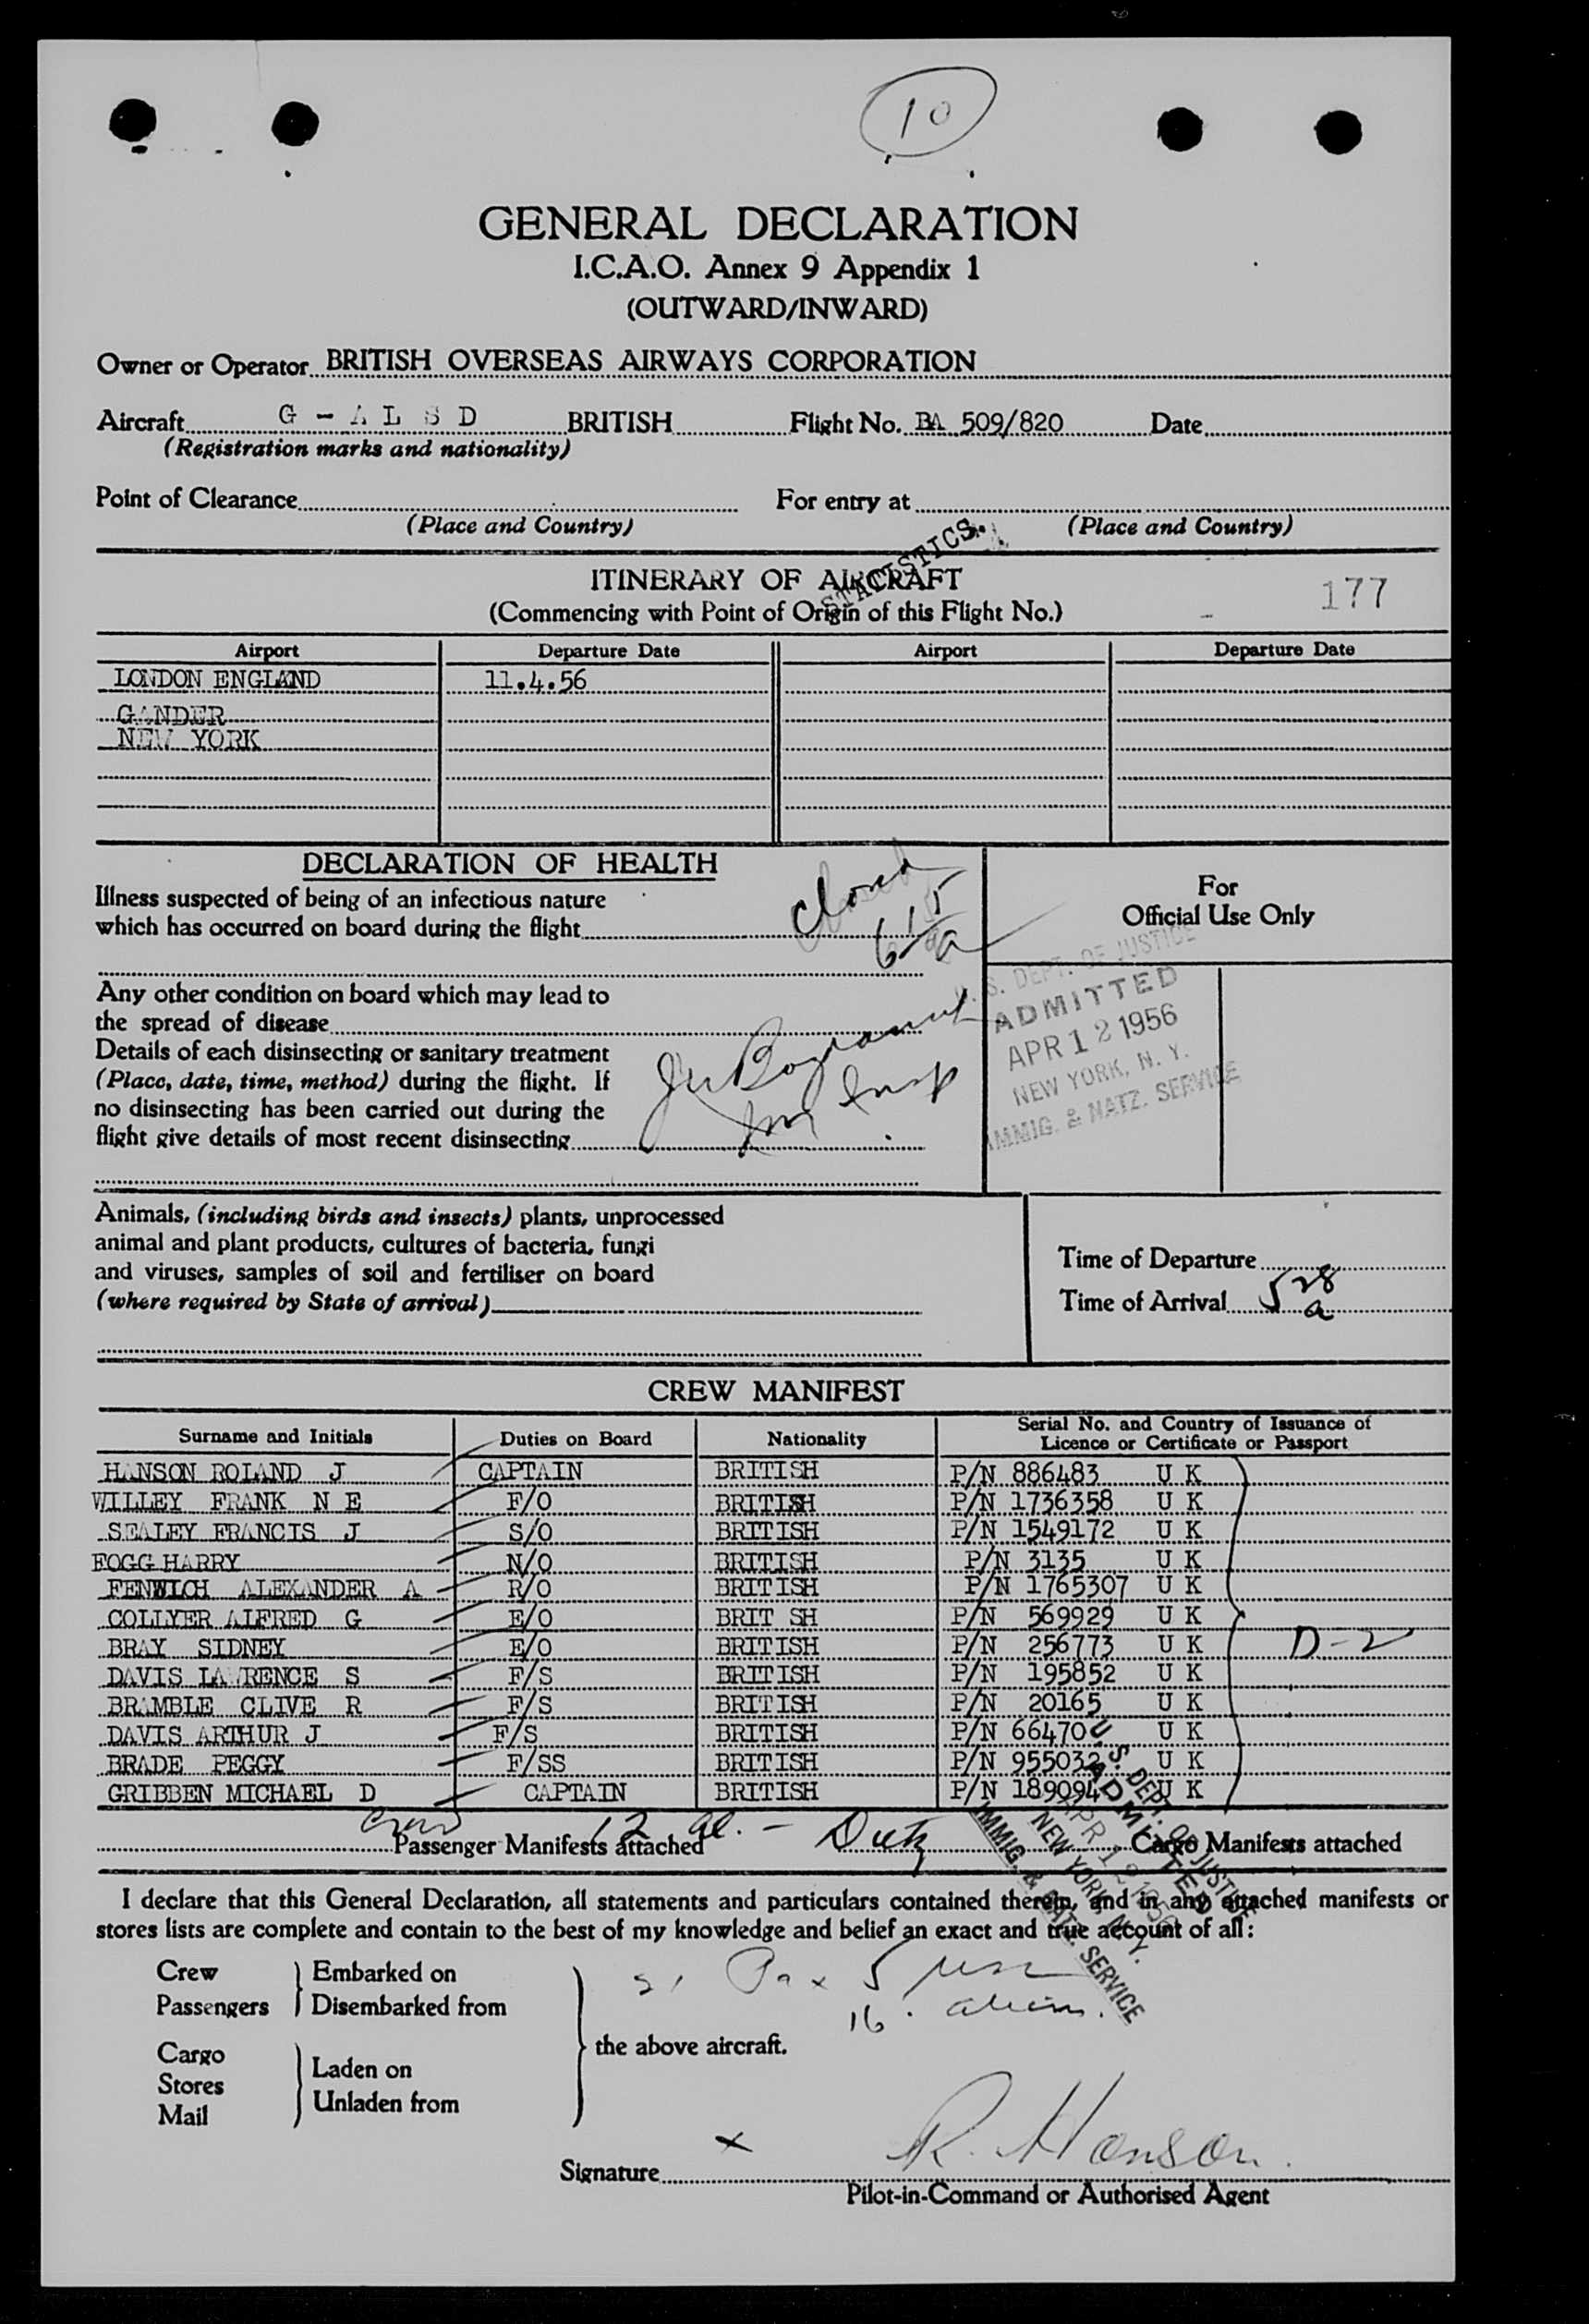 10
GENERAL DECLARATION
I.C.A.O. Annex 9 Appendix 1
(OUTWARD/INWARD)
Owner or Operator BRITISH OVERSEAS AIRWAYS CORPORATION
Aircraft G - A L S D BRITISH Flight No. BA 509/820 Date
(Registration marks and nationality)
Point of Clearance For entry at
(Place and Country) (Place and Country)
STATISTICS.
ITINERARY OF AIRCRAFT 177
(Commencing with Point of Origin of this Flight No.)
Airport Departure Date Airport Departure Date
LONDON ENGLAND 11.4.56
GANDER
NEW YORK
DECLARATION OF HEALTH
For
Official Use Only
Illness suspected of being of an infectious nature
which has occurred on board during the flight
Closed
6 15 a
Any other condition on board which may lead to
the spread of disease
Details of each disinsecting or sanitary treatment
(Place, date, time, method) during the flight. If
no disinsecting has been carried out during the
flight give details of most recent disinsecting
Im Insp
U.S. DEPT. OF JUSTICE
ADMITTED
APR 12 1956
NEW YORK, N. Y.
IMMIG. & NATZ. SERVICE
Animals, (including birds and insects) plants, unprocessed
animal and plant products, cultures of bacteria, fungi
and viruses, samples of soil and fertiliser on board
(where required by State of arrival)
Time of Departure
Time of Arrival 5 28 a
CREW MANIFEST
Surname and Initials Duties on Board Nationality Serial No. and Country of Issuance of Licence or Certificate or Passport
HANSON ROLAND J CAPTAIN BRITISH P/N 886483 U K
WILLEY FRANK N E F/O BRITISH P/N 1736358 U K
SEALEY FRANCIS J S/O BRITISH P/N 1549172 U K
FOGG HARRY N/O BRITISH P/N 3135 U K
FENWICH ALEXANDER A R/O BRITISH P/N 1765307 U K
COLLYER ALFRED G E/O BRIT SH P/N 569929 U K
BRAY SIDNEY E/O BRITISH P/N 256773 U K D-2
DAVIS LAWRENCE S F/S BRITISH P/N 195852 U K
BRAMBLE CLIVE R F/S BRITISH P/N 20165 U K
DAVIS ARTHUR J F/S BRITISH P/N 66470 U K
BRADE PEGGY F/SS BRITISH P/N 955032 U K
GRIBBEN MICHAEL D CAPTAIN BRITISH P/N 189094 U K
Crew 12 al. -
Passenger Manifests attached Cargo Manifests attached
U.S. DEPT. OF JUSTICE
ADMITTED
APR 12 1956
NEW YORK, N. Y.
IMMIG. & NATZ. SERVICE
I declare that this General Declaration, all statements and particulars contained therein, and in any attached manifests or
stores lists are complete and contain to the best of my knowledge and belief an exact and true account of all:
Crew Embarked on
Passengers Disembarked from
21 Pax 5 usc
16 aliens.
the above aircraft.
Cargo
Stores
Mail
Laden on
Unladen from
x R. Hanson.
Signature
Pilot-in-Command or Authorised Agent